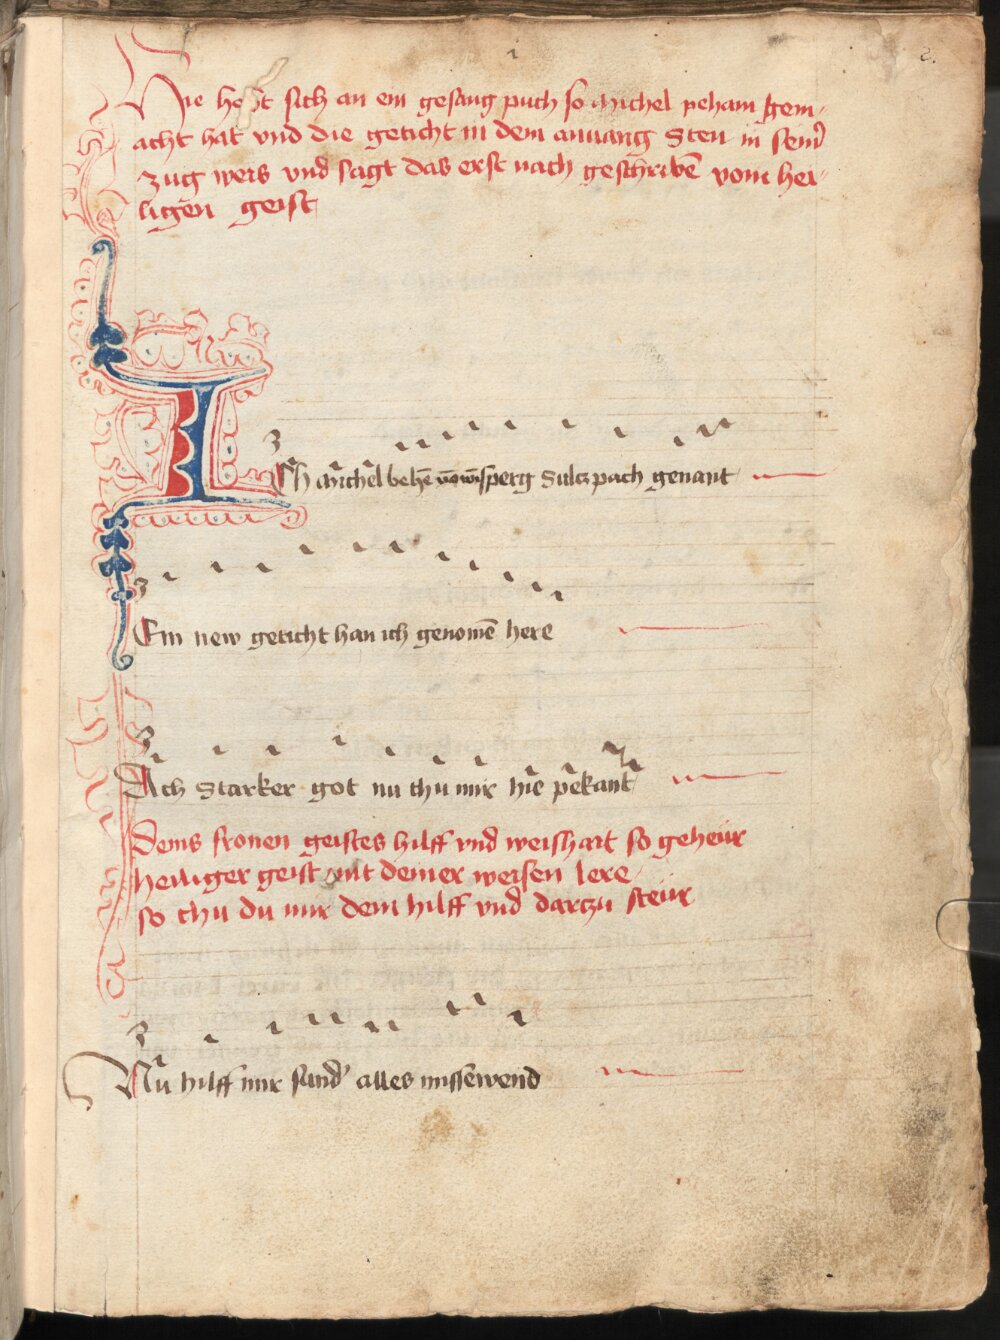 Hie hebt sich an ein gesang puch so michel peham gem-
acht hat vnd die geticht in dem anuang sten in seiner
zug weis vnd sagt das erst nach geschribē vom hei-
ligen geist
Ich michel behē võ wīsperg Sulczpach genant
Ein new geticht han ich genomē here
Ach starker got nu thu mir hie pekant
Deins fronen geistes hilff vnd weishait so geheur
heiliger geist mit deiner weisen lere
so thu du mir dein hilff vnd darczu steur
Nu hilff mir sund alles missewend